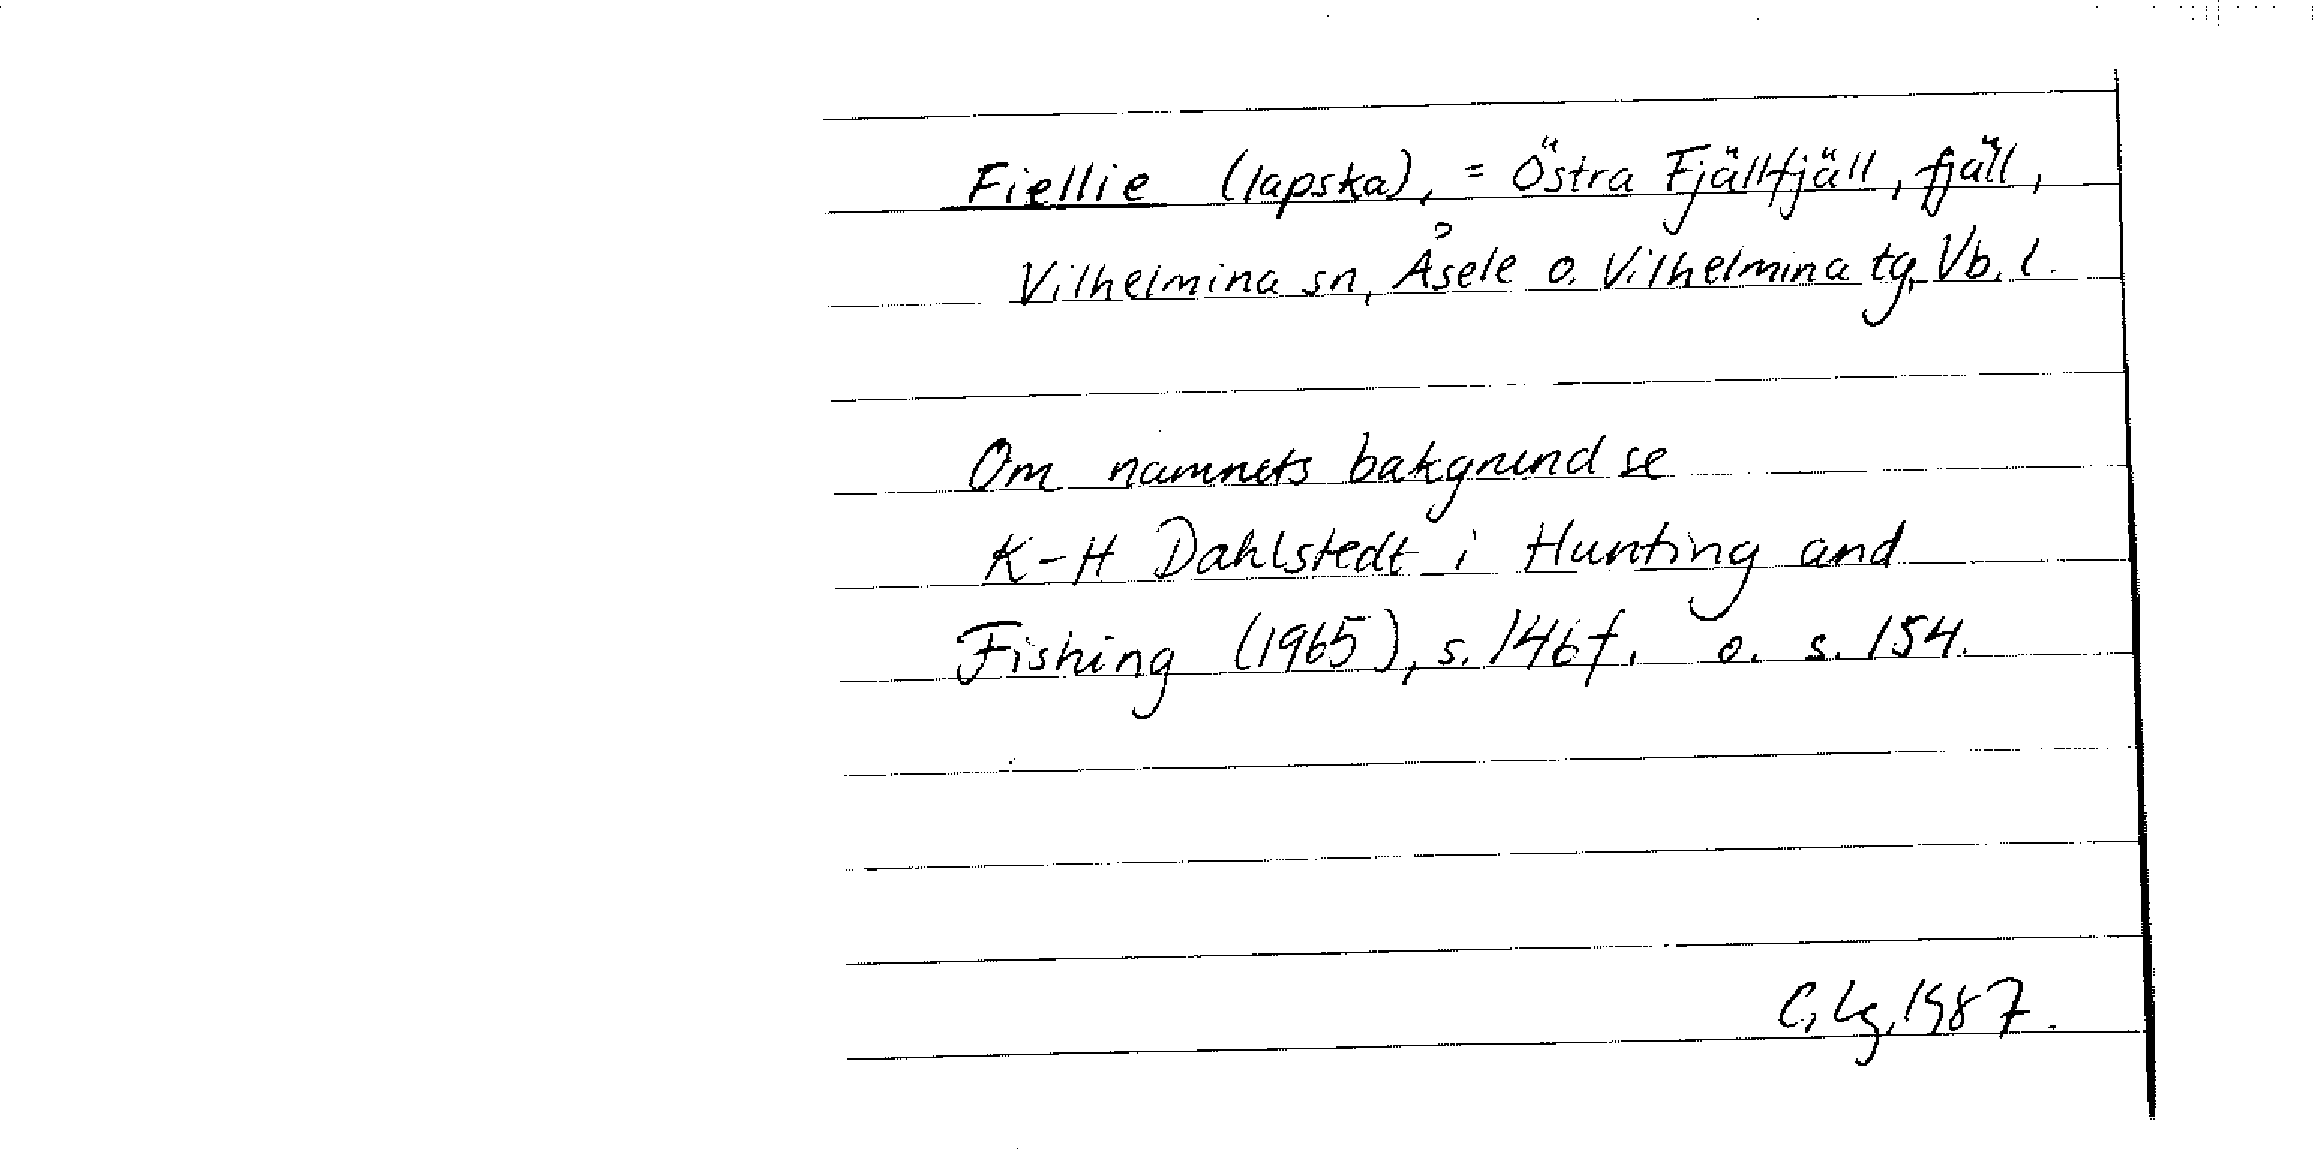 Fiellie (lapska), = Östra Fjällfjäll, fjäll,
Vilhelmina sn, Åsele o. Vilhelmina tg, Vb. l.
Om namnets bakgrund se
K-H Dahlstedt i Hunting and
Fishing (1965), s. 146f. o. s. 154.
C, Lg, 1987.